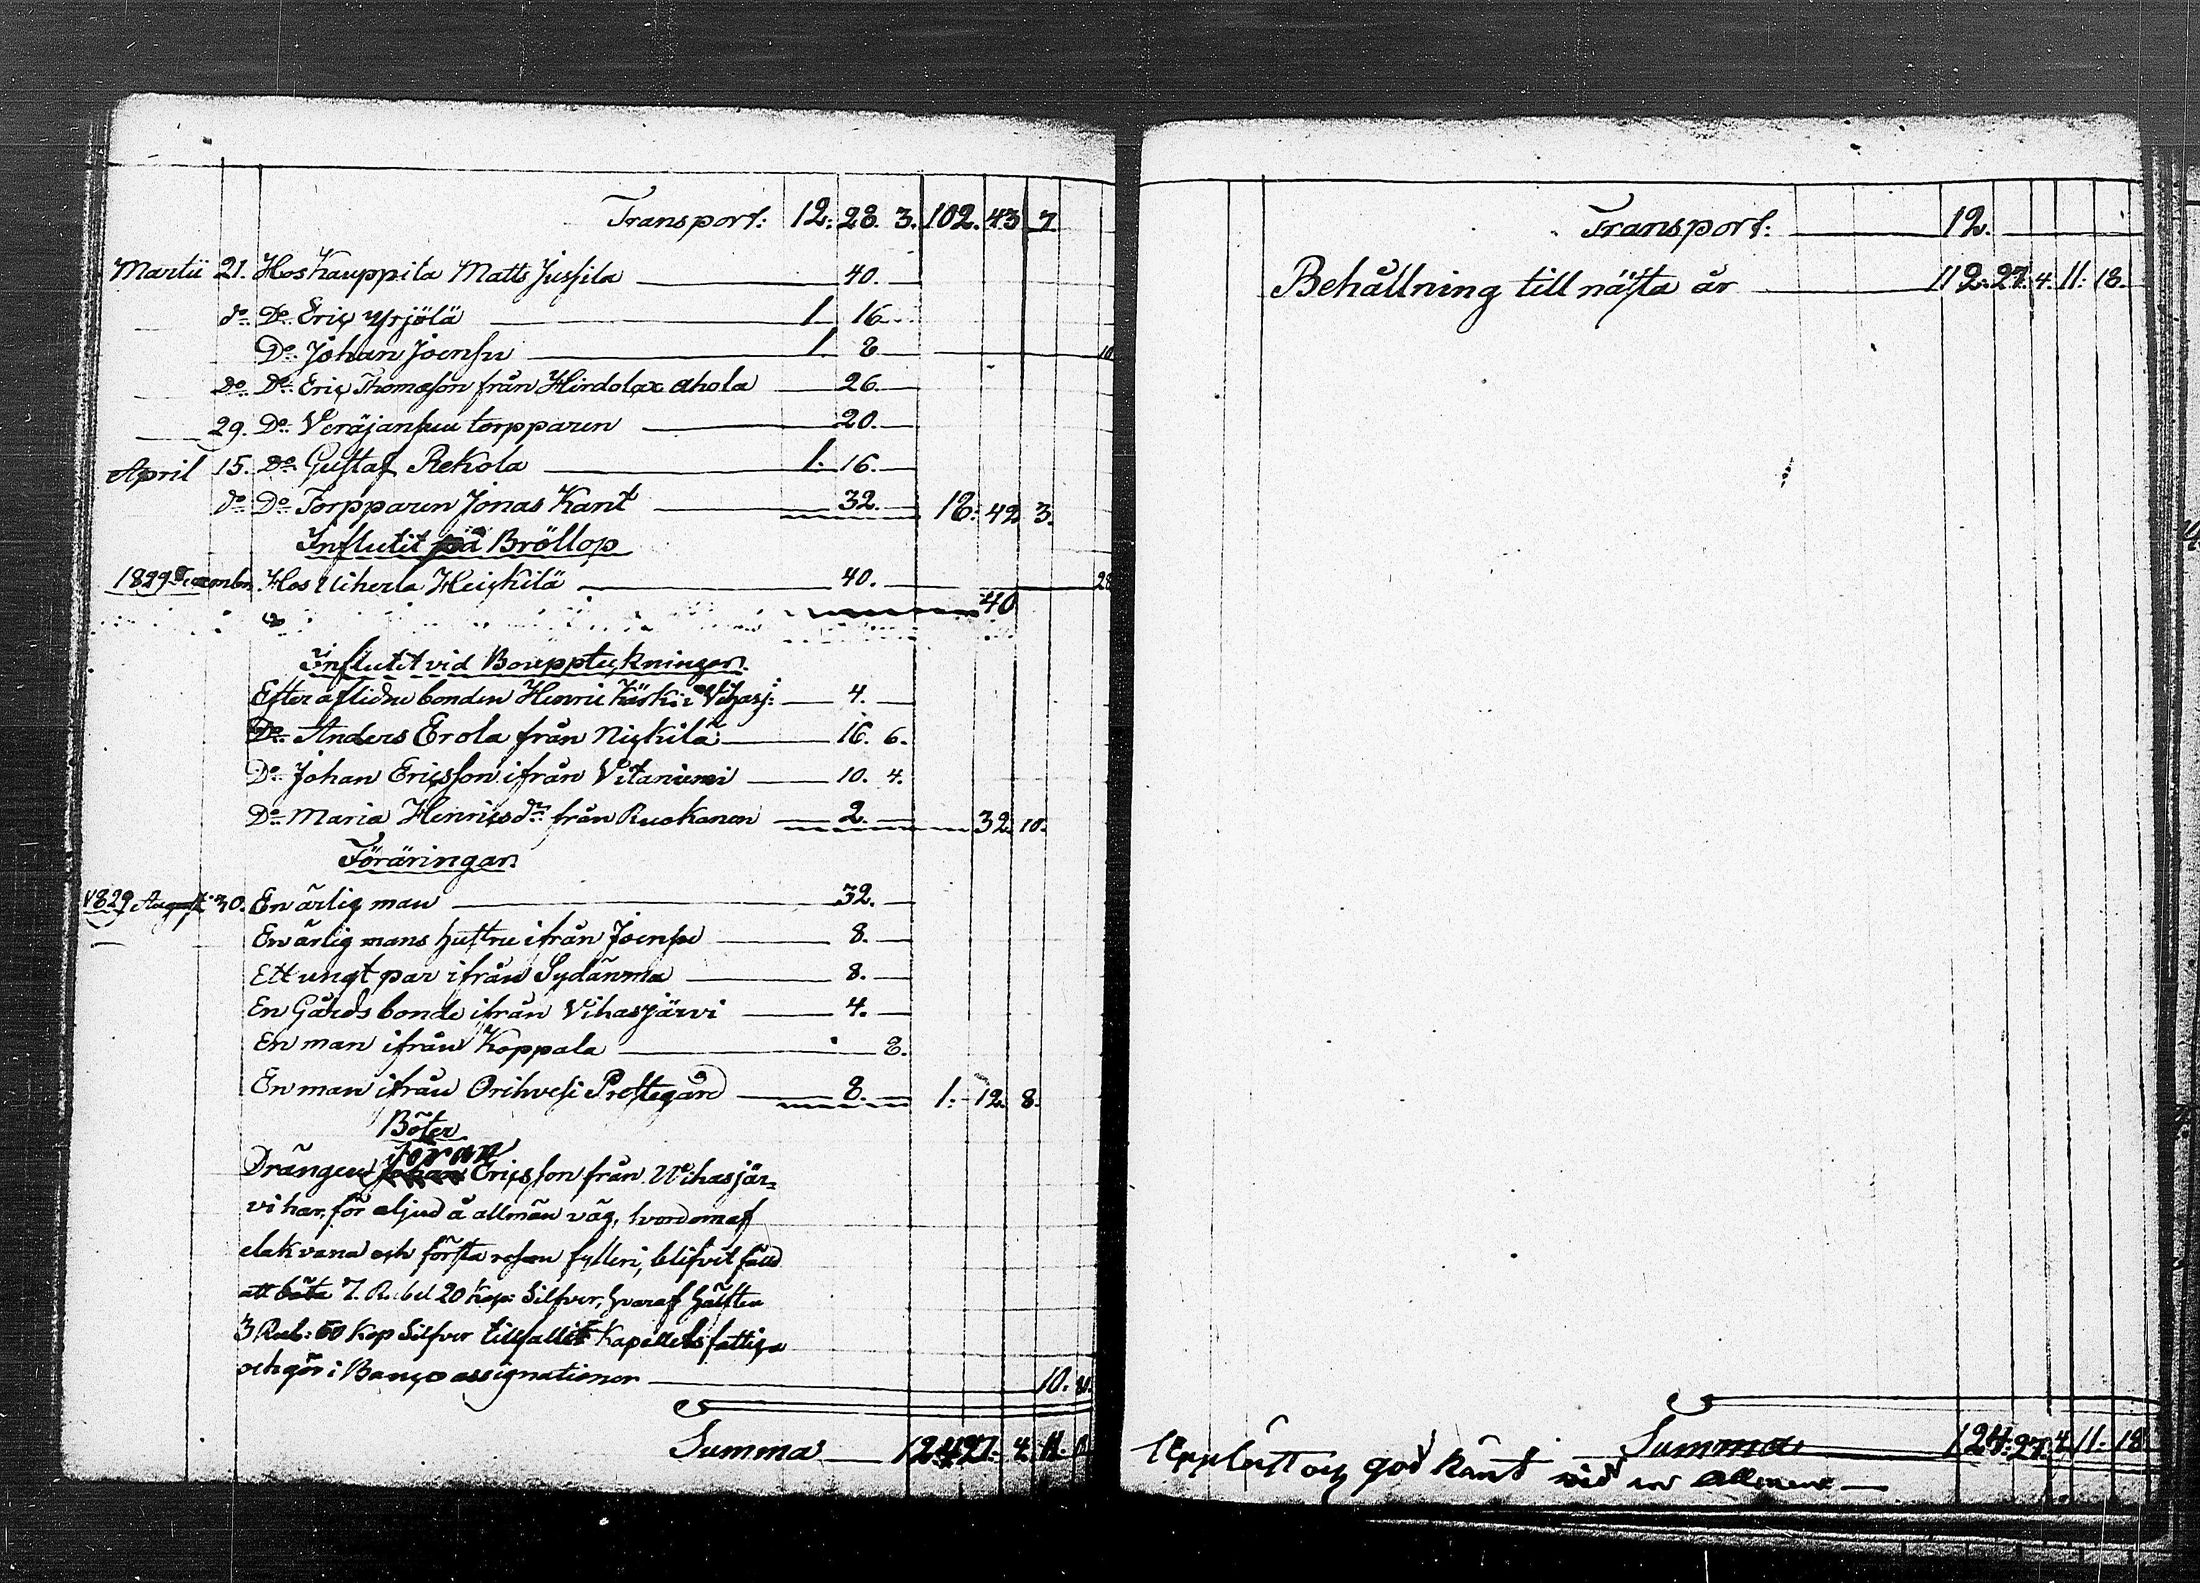 Transport: 12. 28. 3. 102. 43 7
Martii 21. Hos Kauppila Matts Jussila 40.
do Do Eric Yrjölä 1 16
Do Johan Joensu 1. 8 10
Do Do Eric Thomasson från Hirdolax Ahola 26.
29. Do Veräjansuu torpparen 20.
April 15. Do Gustaf Rekola 1. 16.
do Do Torpparen Jonas Kant 32. 12. 42 3.
Influtit på Bröllop
1829 December Hos Uiherla Heickilä 40. 28
40
Influtit vid Bouppteckningar
Efter aflidne bonden Henric Käski i Vihasj: 4.
Do Anders Erola från Nickilä 16. 6.
Do Johan Ericsson ifrån Vitaniemi 10. 4.
Do Maria Henricsdr från Ruokonen 2. 32. 10.
Föräringar
1829 August 30. En ärlig man 32.
En ärlig mans hustru ifrån Joensu 8.
Ett ungt par ifrån Sydänma 8.
En Gårds bonde ifrån Vihasjärvi 4.
En man ifrån Koppala 8.
En man ifrån Orihvesi Prestegård 8. 1. 12. 8.
Böter
Göran
Drängen Johan Ericsson från Wihasjär=
vi har, för oljud å allmän väg, hvordom af
elak vana och första resan fylleri, blifvit fälld
att böta 7. Rubel 20 Kop: Silfver, hvaraf hälften
3 Rub: 60 Kop Silfver tillfallit Kapellets fattiga
och gör i Banco assignationer 10. 8.
Summa 124 27. 4. 11. 18
Transport: 12.
Behållning till nästa år 112. 27. 4. 11. 18.
Summa 124. 27. 4. 11. 18
Uppläst och god känt vid en allmän